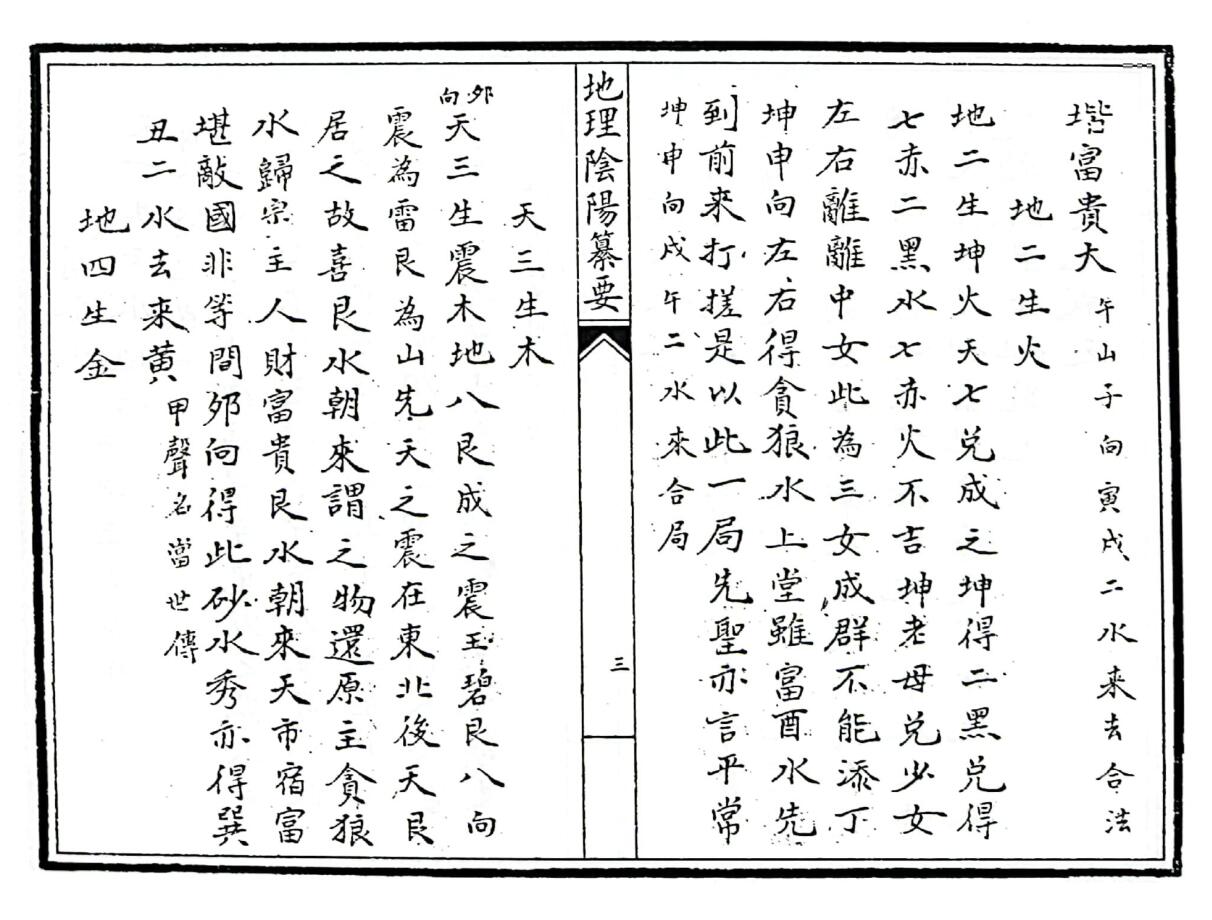 堦富貴大 午山子向寅戌二水来去合法
地二生火
地二生坤火天七兑成之坤得二黑兑得
七赤二黑水七赤火不吉坤老母兑少女
左右離離中女此為三女成群不能添丁
坤申向左右得貪狼水上堂雖富酉水先
到前來打搓是以此一局先聖亦言平常
坤申向戌午二水來合局
地理陰陽纂要
三
天三生木
卯向
天三生震木地八艮成之震玉碧艮八向
震為雷艮為山先天之震在東北後天艮
居之故喜艮水朝來謂之物還原主貪狼
水歸宗主人財富貴艮水朝來天市宿富
堪敵國非等間卯向得此砂水秀亦得巽
丑二水去来黄甲聲名當世傳
地四生金